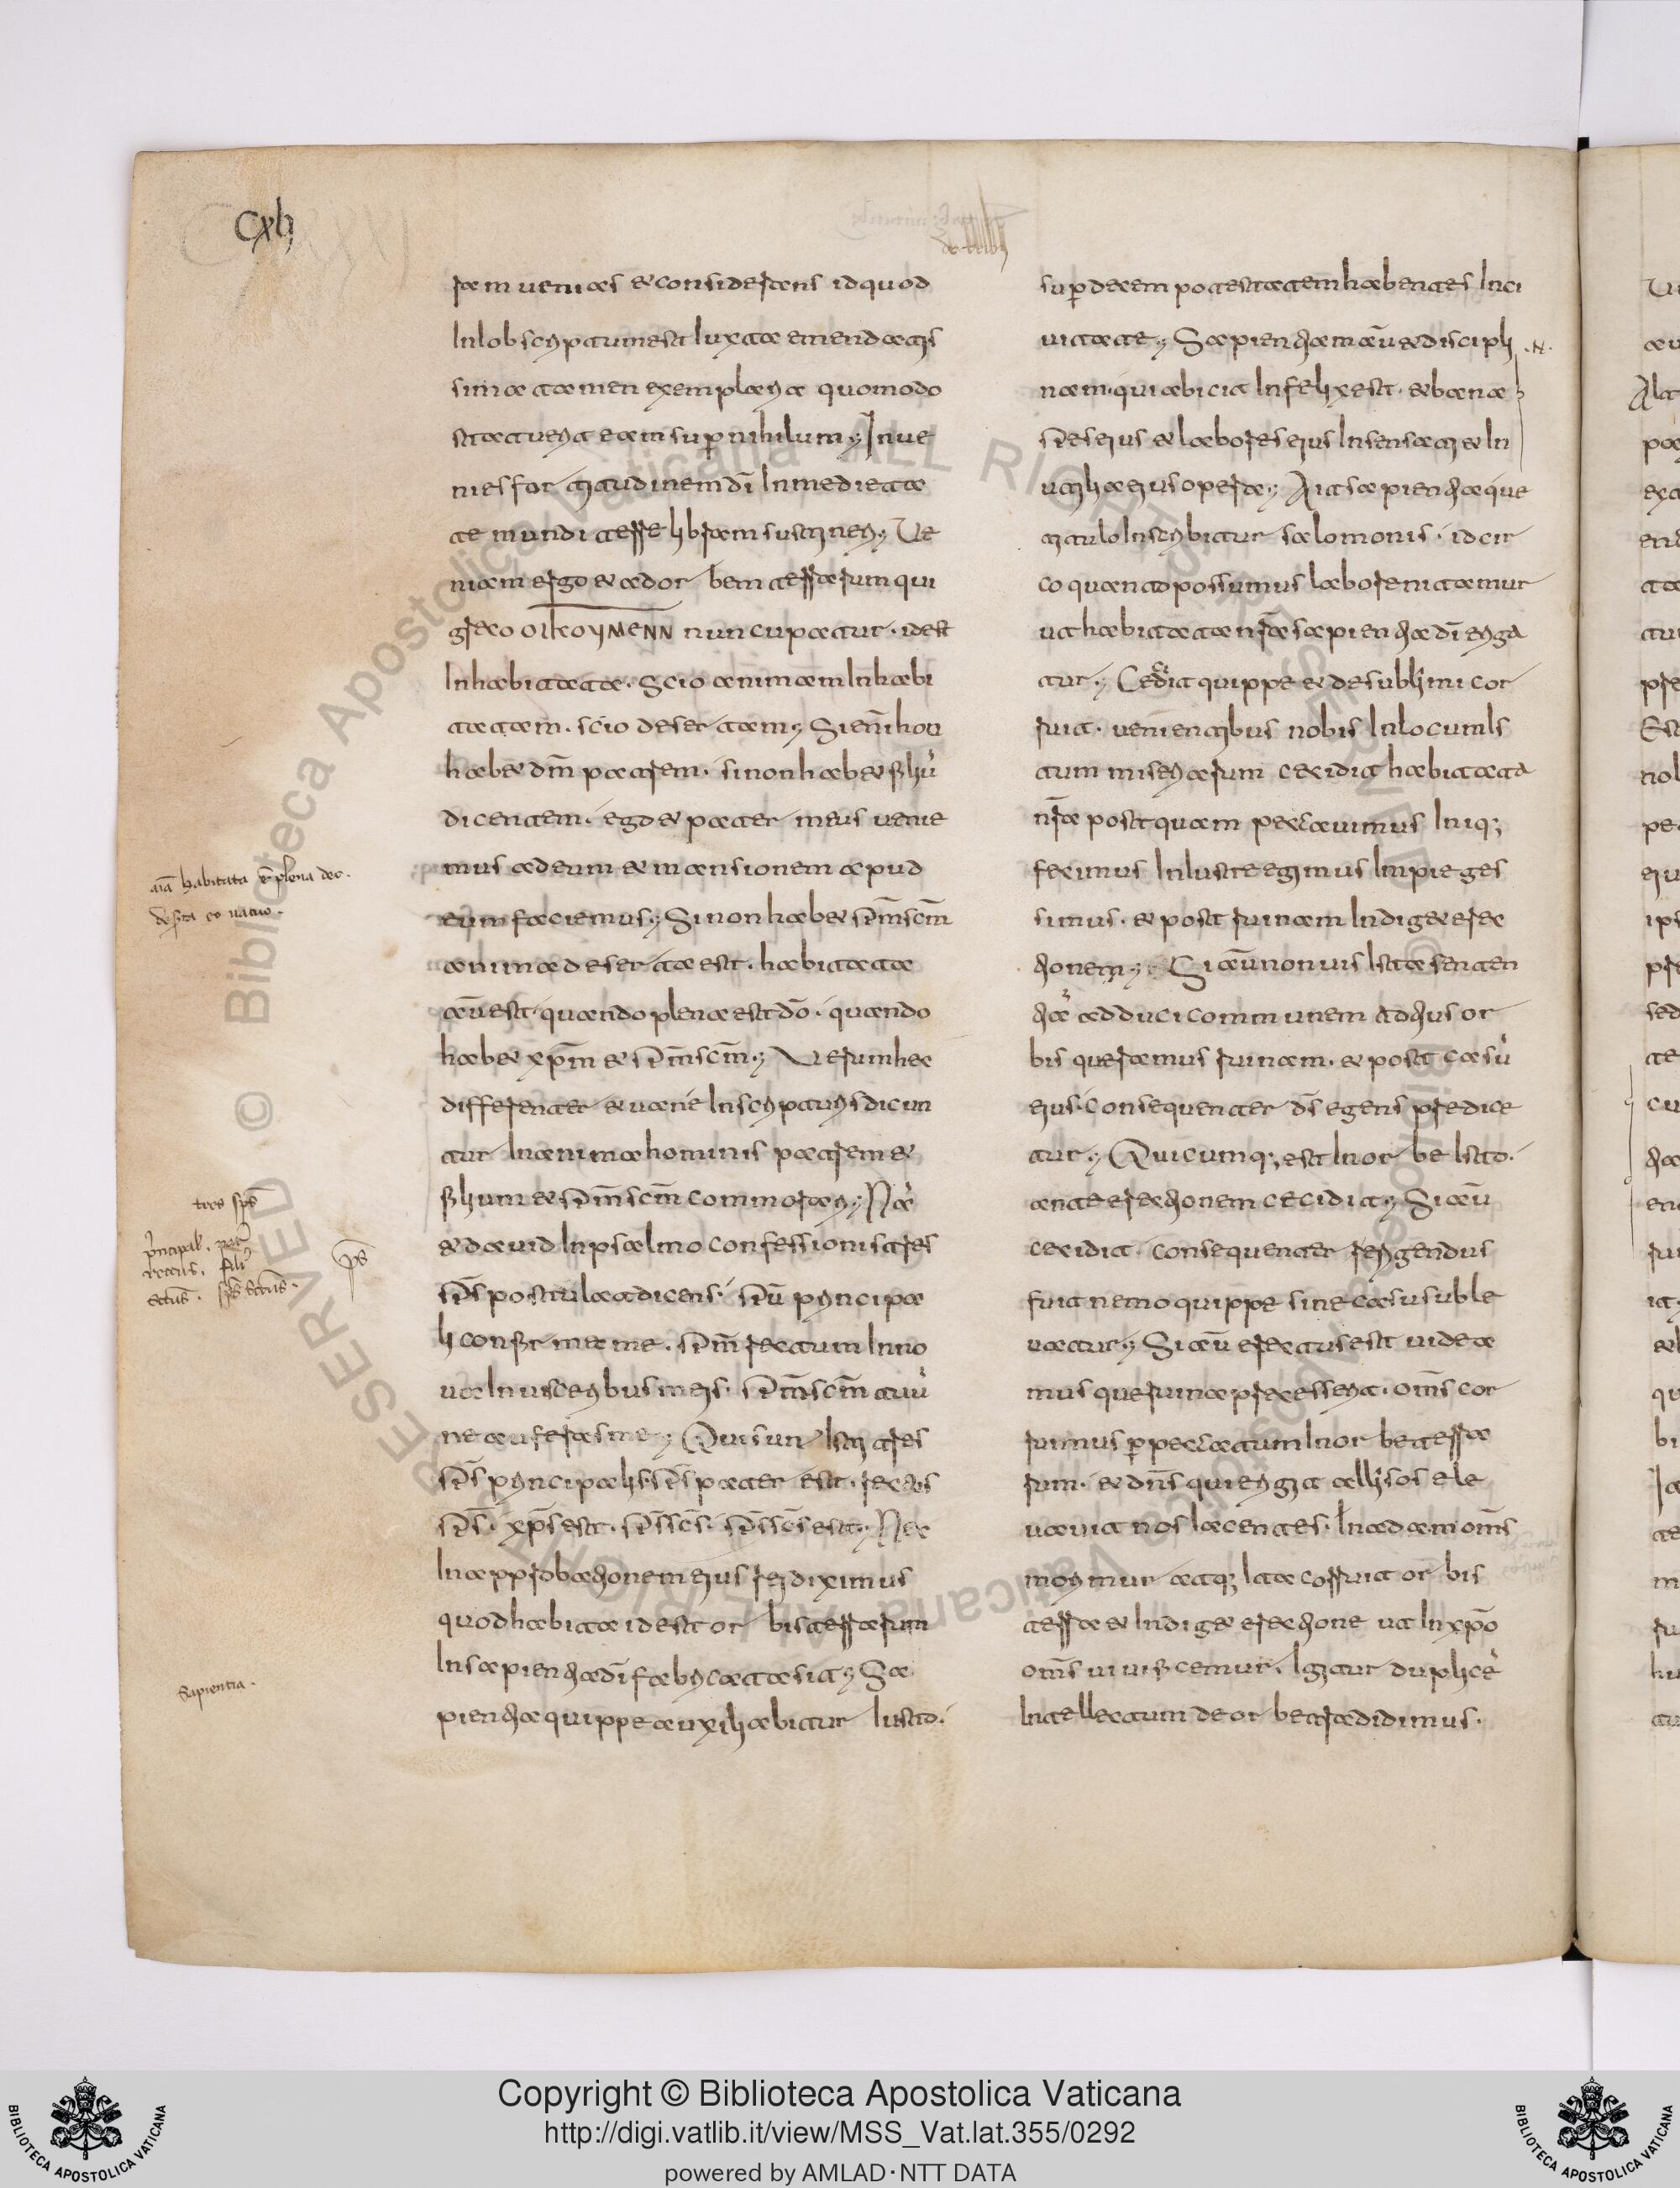 Cxlj
ram uenias & considerans id quod
In Iob scriptum est Iuxta emendatis
sima tamen exemplaria quomodo
stat uerit eam sup nihilum; Inue
nies for titudinem dī In mediета
te mundi terre libram sustineri; Ue
niam ergo & ad or bem terrarum qui
greco OIKOYMENN nuncupatur · id est
Inhabitata · Scio animam Inhabi
tatam · scio deser tam; Si enī non
hab& dm̄ patrem · si non hab& filiu
dicentem · ego & pater meus uenie
mus ad eum & mansionem apud
eum faciemus; Si non hab& spm̄ scm̄
anima deser ta est · habitata
aū est quando plena est dō · quando
hab& xpm̄ & spm̄ scm̄; Uerum hec
differenter & uarie In scripturis dicun
tur In anima hominis patrem &
filium & spm̄ scm̄ commorari; Na
& dauid In psalmo confessionis tres
spr̄s postulat dicens · spū principa
li confir ma me · spm̄ rectum Inno
ua In uisceribus meis · spm̄ scm̄ tuu
ne auferas me; Qui sunt Isti tres
sp̄s principalis sp̄s pater est · rectus
sp̄s · xp̄s est · sp̄s scs̄ · sp̄s scs̄ est; Nec
In approbationem eius rei diximus
quod habita id est or bis terrarum
In sapientia dī fabricata sit; Sa
pientiæ quippe auxiliabitur Iusto ·
sup decem potestatem habentes In ci
uitate; Sapientiam aū & discipli
nam · qui abicit Infelix est · & bana
spes eius & labores eius Insensati & In
utilia eius opera; Ait sapientia que
titulo Inscribitur salomonis · idcir
co quanto possumus labore nitamur
ut habitata nr̄a sapientia dī eriga
tur; Cecidit quippe & de sublimi cor
ruit · uenientibus nobis In locum Is
tum miseriarum cecidit habitata
nr̄a postquam peccauimus Iniq;
fecimus Iniuste egimus Impie ges
simus · & post ruinam Indig& erec
tionem; Si aū non uis Ista senten
tia adduci communem ad tius or
bis queramus ruinam · & post casu
eius · consequenter ds̄ egens predica
tur; Quicumq; est In or be Isto ·
ante erectionem cecidit; Si aū
cecidit · consequenter rerigendus
fuit nemo quippe sine casu suble
uatur; Si aū erectus est uidea
mus que ruina precesserit · oms̄ cor
ruimus p peccatum In or be terra
rum · & dns̄ qui erigit allisos ele
uauit nos Iacentes · In adam oms̄
morimur atq; Ita corruit or bis
terra & Indig& erectione ut In xpō
oms̄ uiuificemur · Igitur duplice
Intellectum de or be tradidimus ·
aīa habitata ē plena deo ·
tres sp̄s
principal. pater
rectus. fili
sctūs. sp̄s sctūs ·
ps̄
Sapientia ·
Copyright © Biblioteca Apostolica Vaticana
http://digi.vatlib.it/view/MSS_Vat.lat.355/0292
powered by AMLAD·NTT DATA
BIBLIOTECA APOSTOLICA VATICANA
BIBLIOTECA APOSTOLICA VATICANA